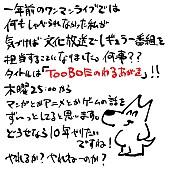 一年前のワンマンライブでは
何もしゃべらなかった私が
気づけば文化放送でレギュラー番組を
担当することになりました。何事??
タイトルは「TooBOEのわるあがき」!!
木曜25:00から
マンガとかアニメとかゲームの話を
ずぃーっとしてると思います。
どうせなら10年やりたい
ですね!
やれるか? やれんのーのか?